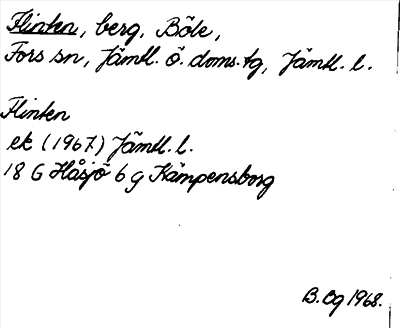 Flinten, berg, Böle,
Fors sn, Jämtl. ö. doms. tg, Jämtl. l.
Flinten
ek (1967) Jämtl. l.
18 G Håsjö 6 g Kämpensborg
B. Og 1968.